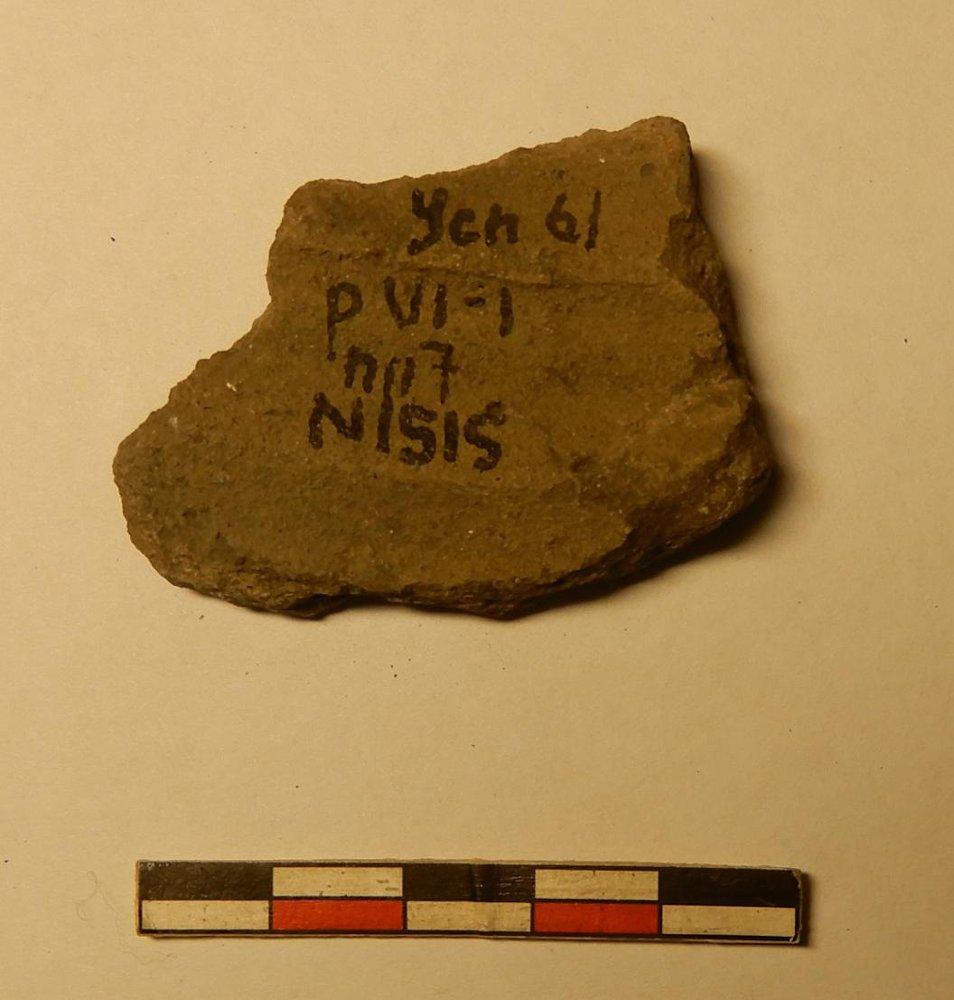 Yen 61
P VI-1
nn7
NISIS